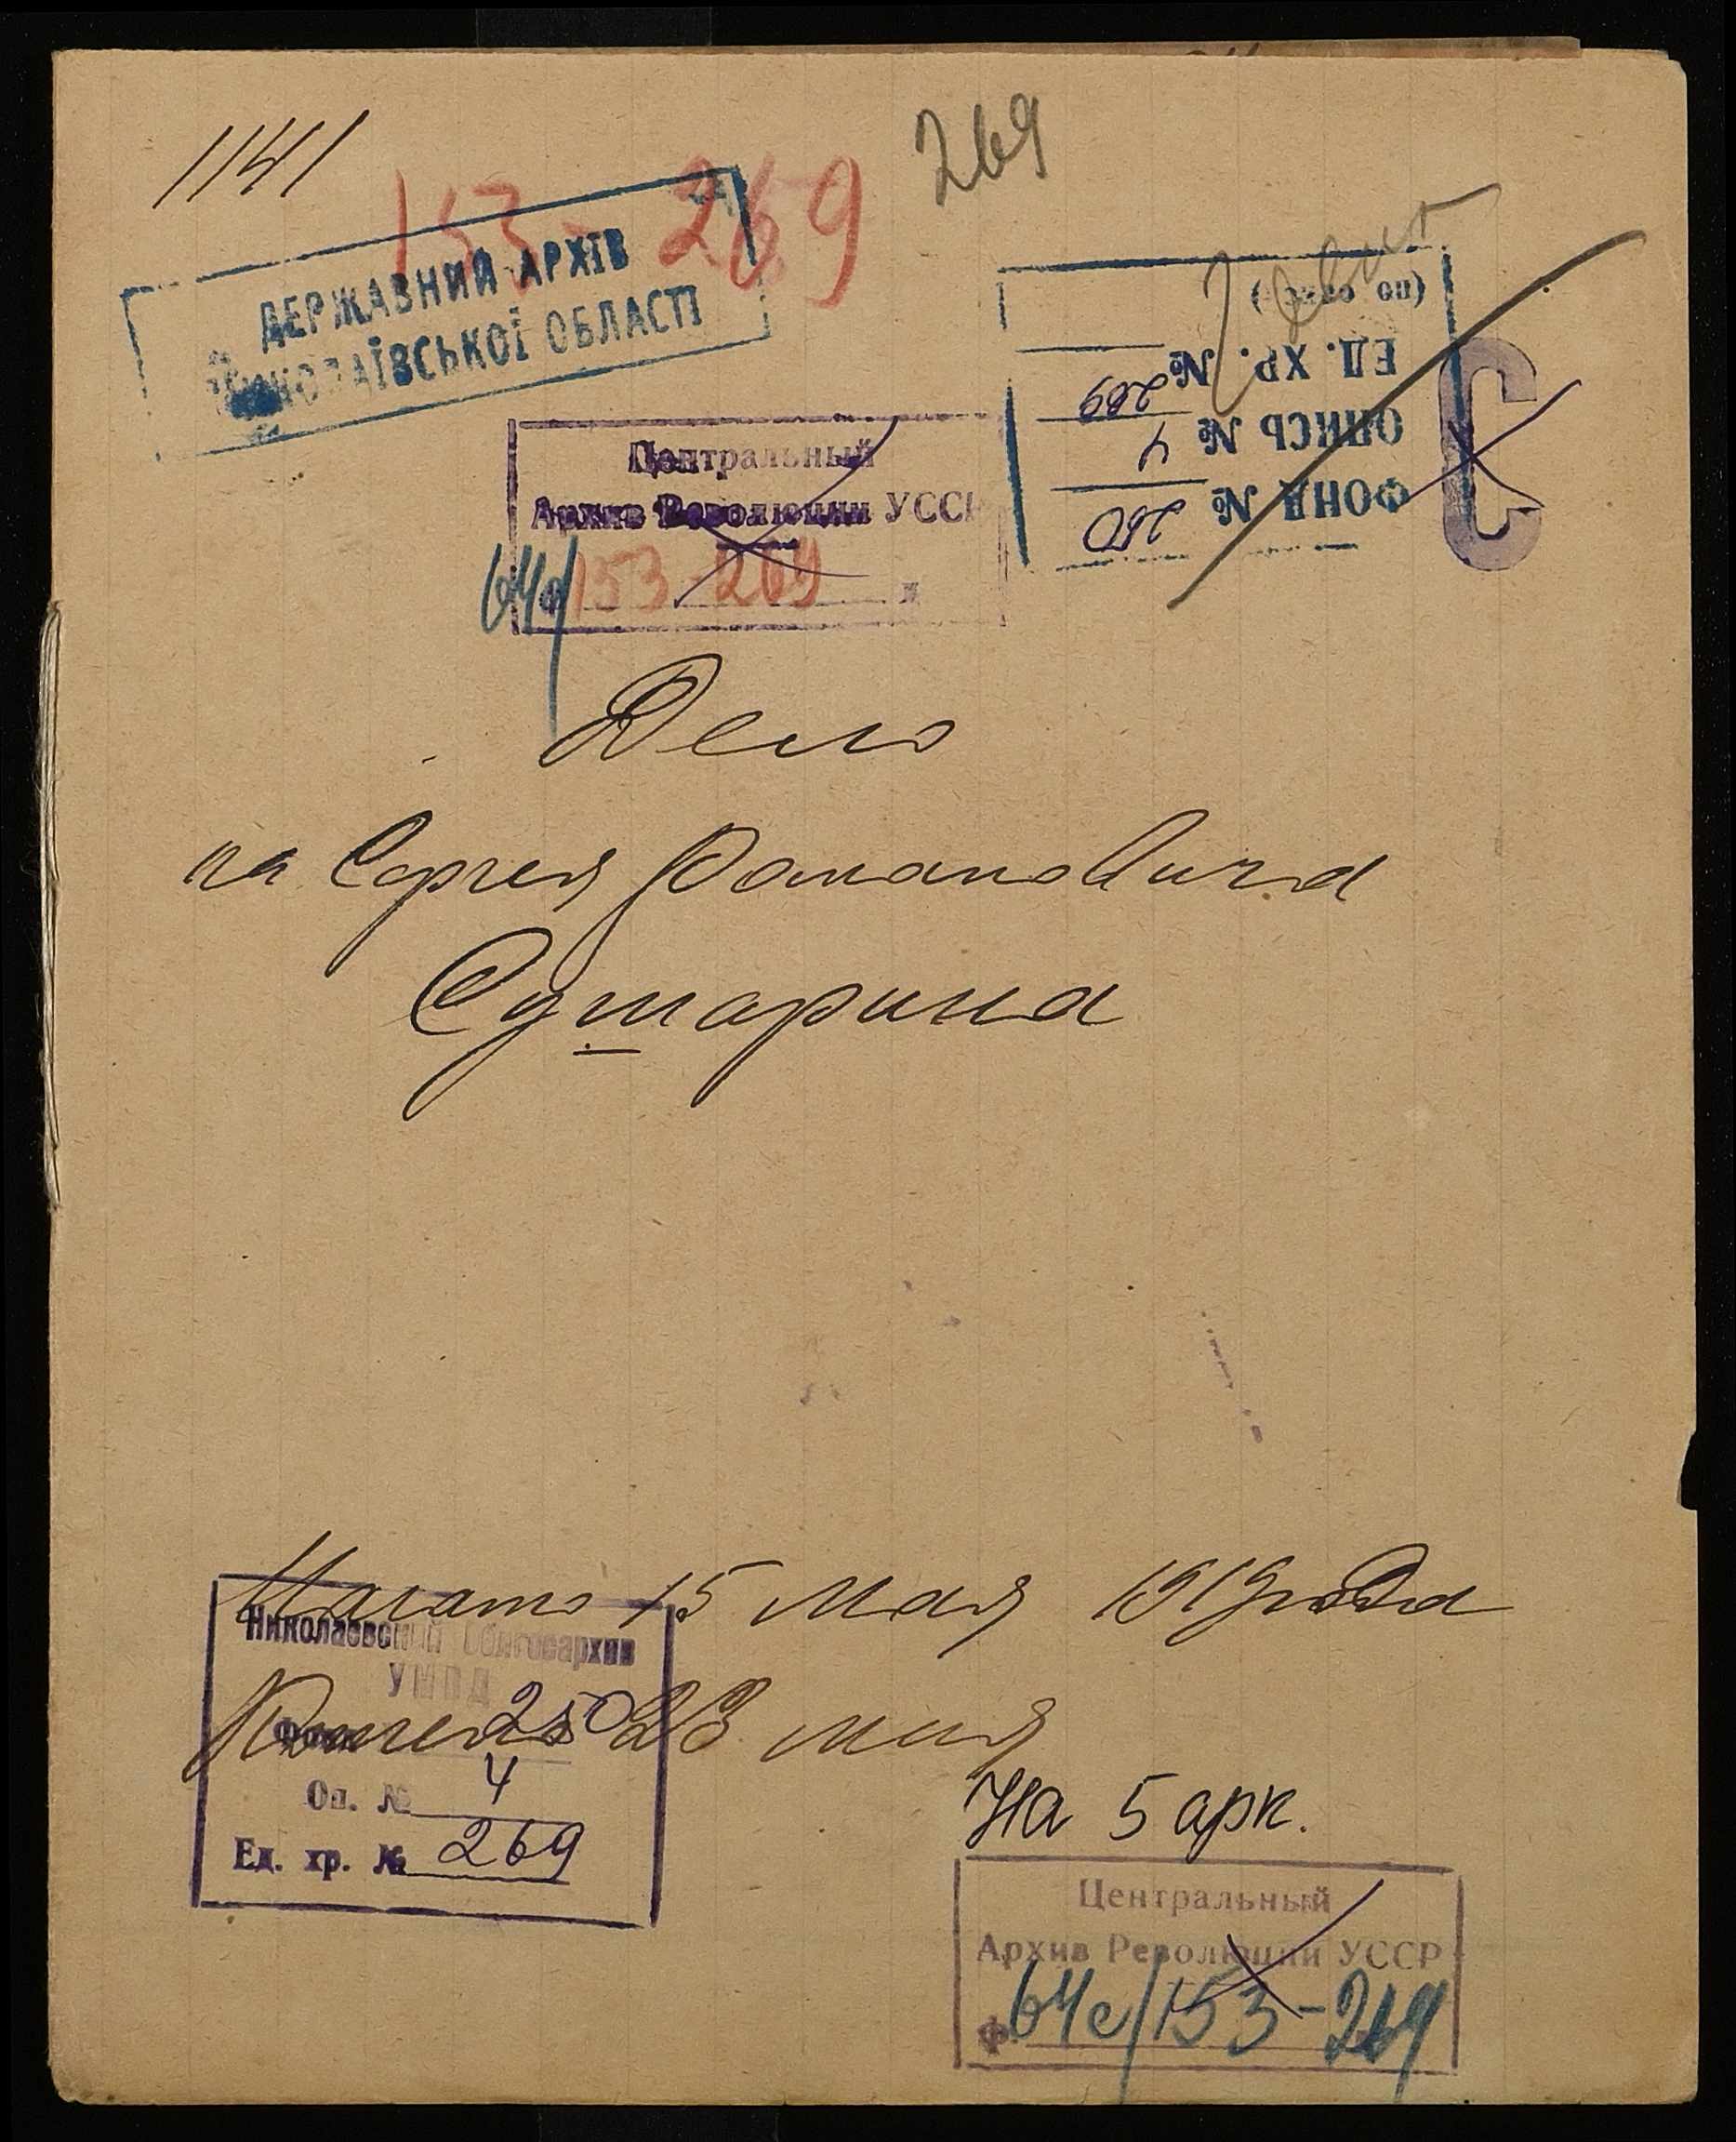 1141
153 - 269
269
ДЕРЖАВНИЙ АРХІВ
МИКОЛАЇВСЬКОЇ ОБЛАСТІ
ФОНД № 250
ОПИСЬ № 4
ЕД. ХР. № 269
С
Центральный
Архив Революции УССР
153 - 269
Дело
на Сергея Романовича
Сушарина
Начато 15 мая 1919 года
Николаевский Облгосархив
250
23 мая
Оп. № 4
Ед. хр. № 269
На 5 арк.
Центральный
Архив Революции УССР
Ф. 64с/153-269